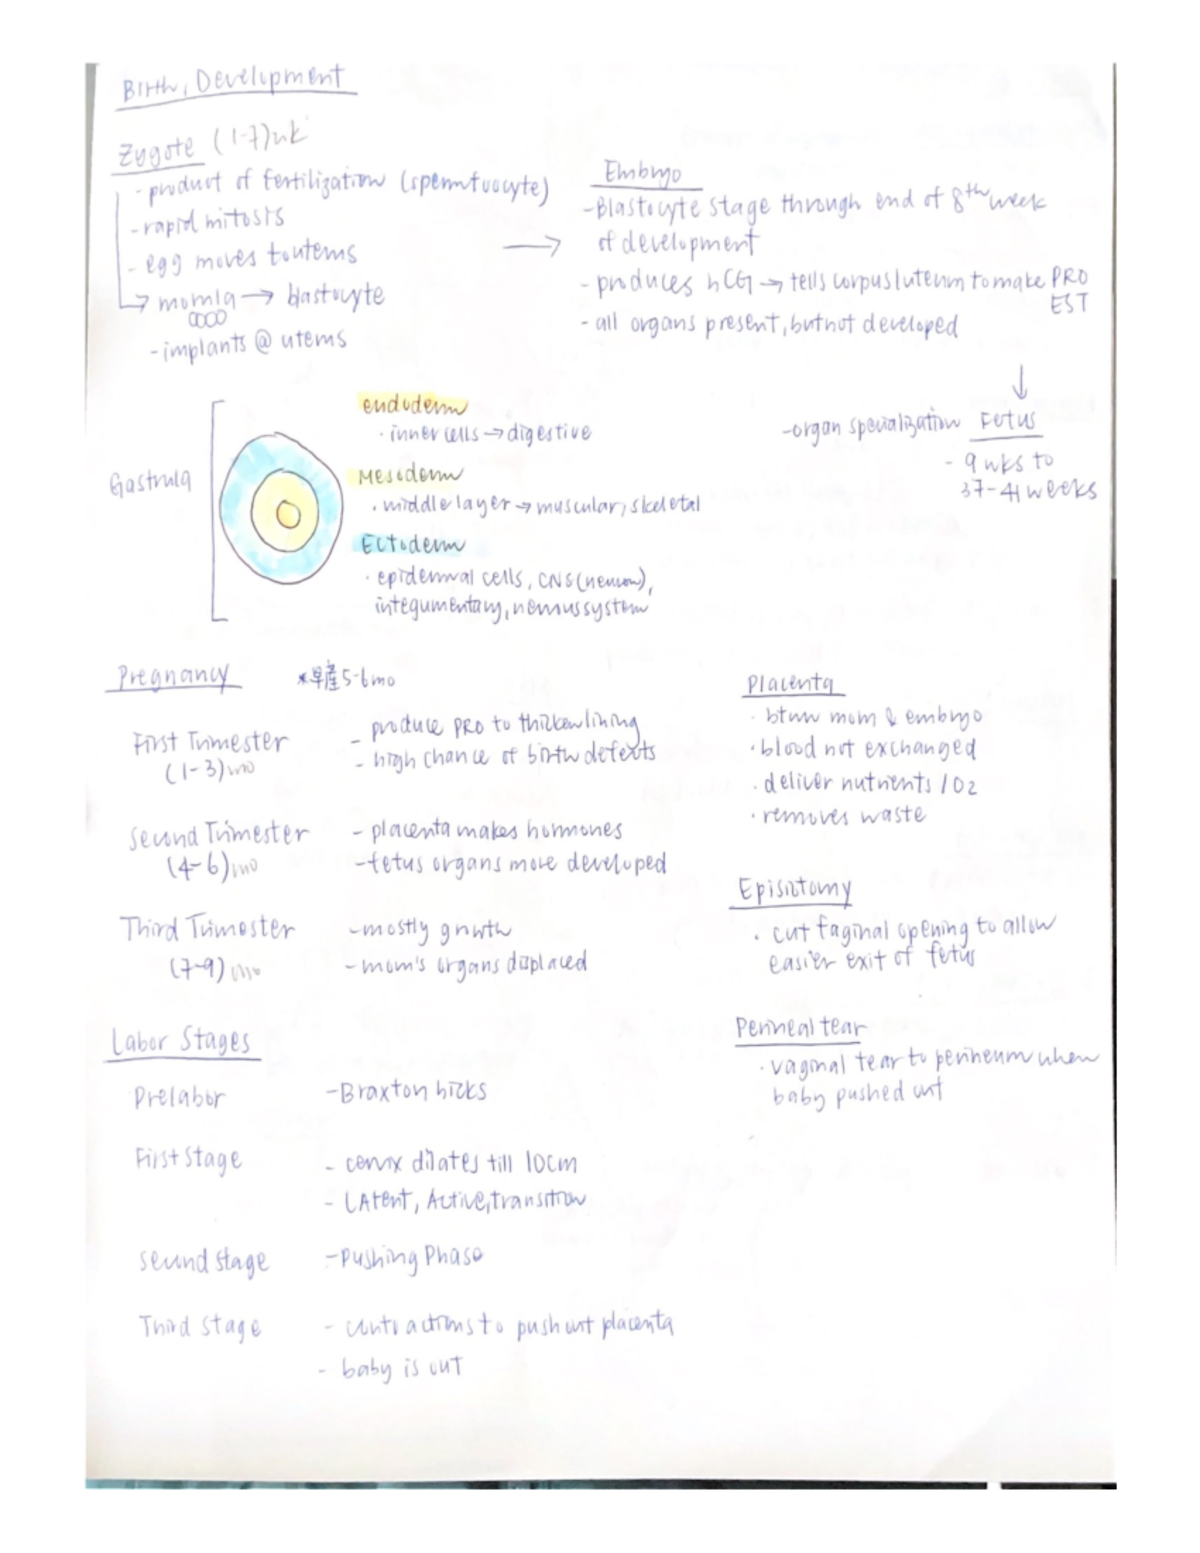 Birth, Development
Zygote (1-7)wk
- product of fertilization (sperm+oocyte)
- rapid mitosis
- egg moves to uterus
morula → blastocyte
- implants @ uterus
Embryo
- Blastocyte stage through end of 8th week
of development
- produces hCG → tells corpus luteum to make PRO
EST
- all organs present, but not developed
- organ specialization Fetus
- 9 wks to
37-41 weeks
Gastrula
endoderm
· inner cells → digestive
Mesoderm
· middle layer → muscular, skeletal
Ectoderm
· epidermal cells, CNS (neuron),
integumentary, nervous system
Pregnancy *早產 5-6mo
First Trimester
(1-3) mo
- produce PRO to thicken lining
- high chance of birth defects
Second Trimester
(4-6) mo
- placenta makes hormones
- fetus organs more developed
Third Trimester
(7-9) mo
- mostly growth
- mom's organs displaced
Placenta
· btwn mom & embryo
· blood not exchanged
· deliver nutrients / O2
· removes waste
Episiotomy
· cut faginal opening to allow
easier exit of fetus
Perineal tear
· vaginal tear to perineum when
baby pushed out
Labor Stages
Prelabor - Braxton hicks
First Stage - cervix dilates till 10cm
- LAtent, Active, transition
Second stage - Pushing Phase
Third stage - contractions to push out placenta
- baby is out